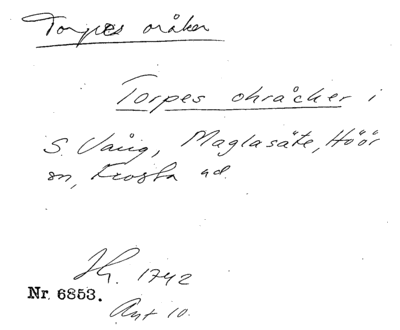 Torpes oråker
Torpes ohråcker i
S. Vång, Maglasäte, Höör
sn, Frosta hd.
Jh. 1742
Nr. 6853.
Ant 10.